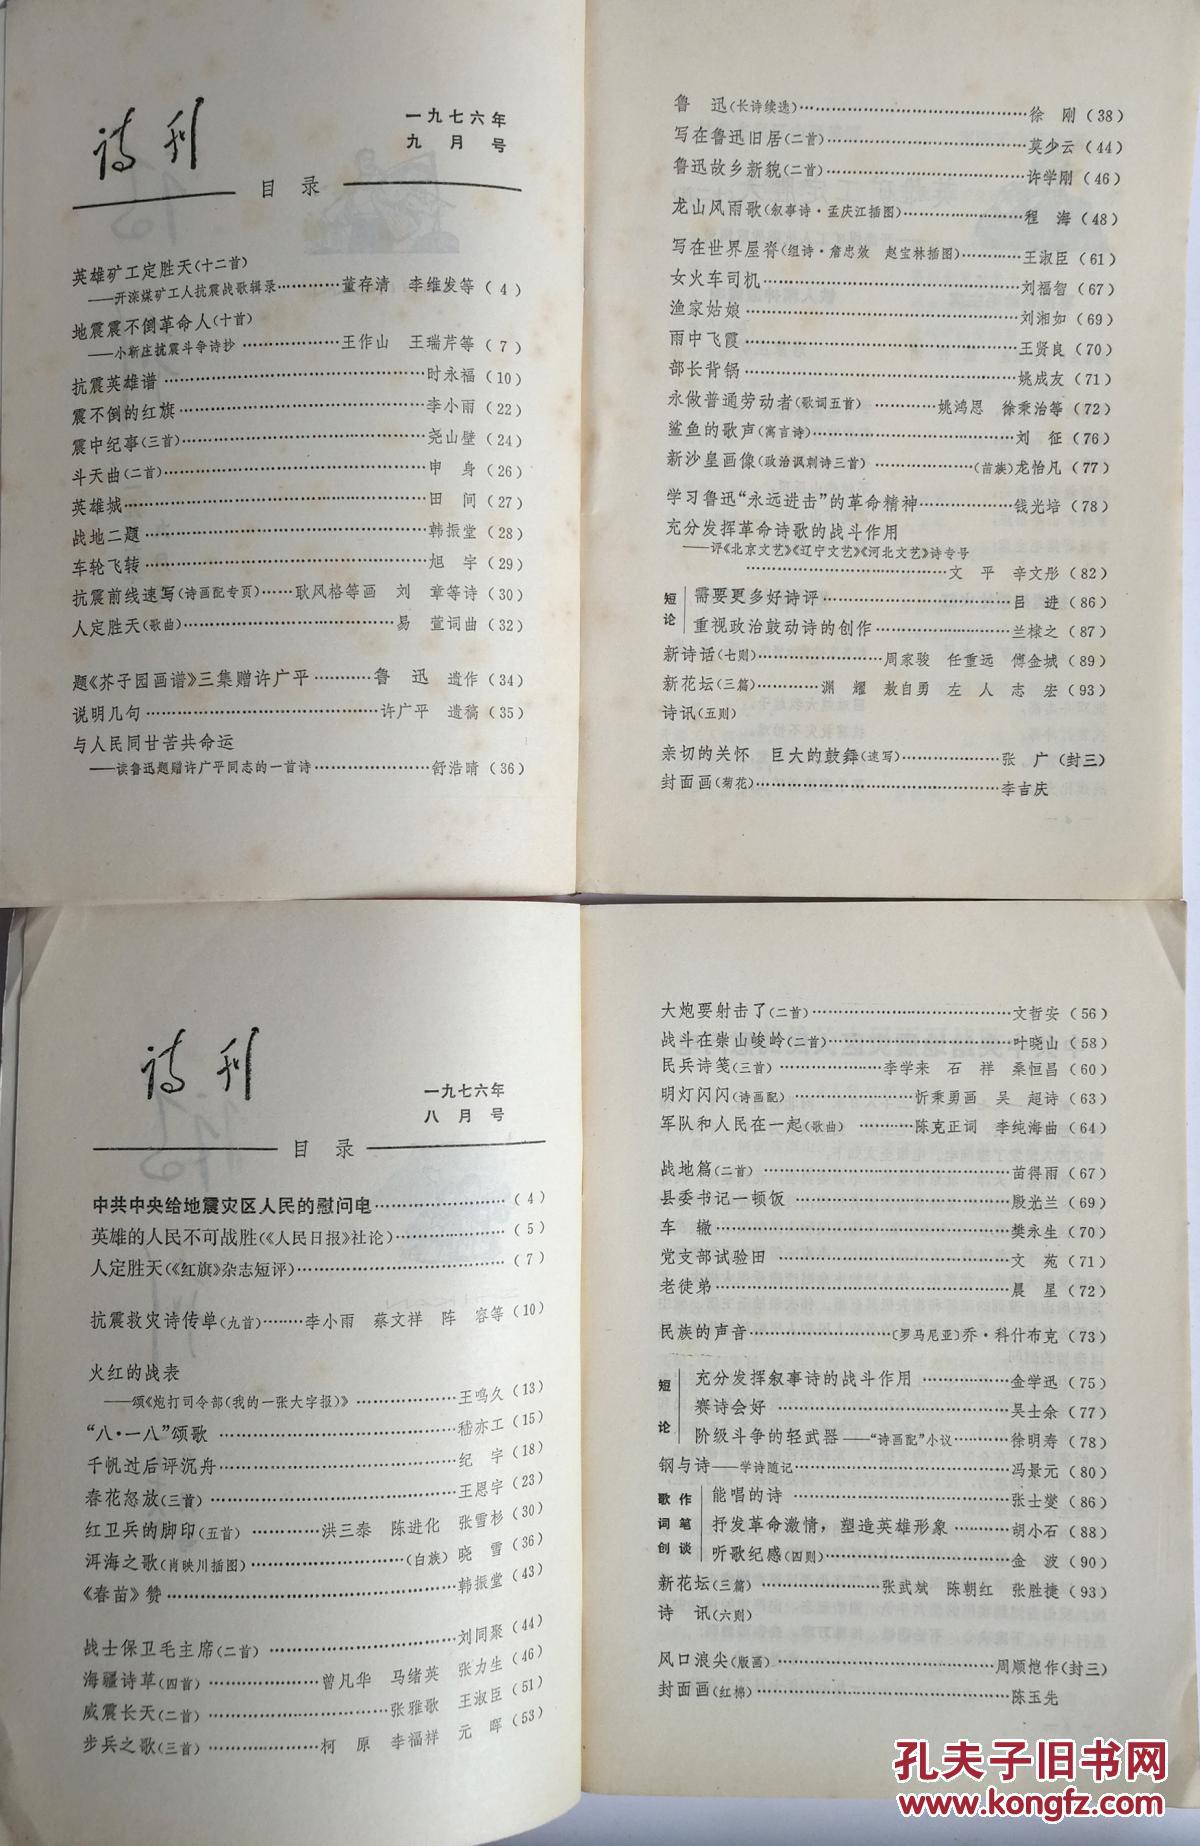 诗刊
一九七六年
九月号
目录
英雄矿工定胜天(十二首)
——开滦煤矿工人抗震战歌辑录…………董存清 李维发等(4)
地震震不倒革命人(十首)
——小靳庄抗震斗争诗抄………………王作山 王瑞芹等(7)
抗震英雄谱………………………………时永福(10)
震不倒的红旗……………………………李小雨(22)
震中纪事(三首)…………………………尧山壁(24)
斗天曲(二首)……………………………申 身(26)
英雄城……………………………………田 间(27)
战地二题…………………………………韩振堂(28)
车轮飞转…………………………………旭 宇(29)
抗震前线速写(诗画配专页)……耿风格等画 刘 章等诗(30)
人定胜天(歌曲)…………………………易 萱词曲(32)
题《芥子园画谱》三集赠许广平………鲁 迅 遗作(34)
说明几句…………………………………许广平 遗稿(35)
与人民同甘苦共命运
——读鲁迅题赠许广平同志的一首诗………………舒浩晴(36)
鲁 迅(长诗续选)…………………………徐 刚(38)
写在鲁迅旧居(二首)……………………莫少云(44)
鲁迅故乡新貌(二首)……………………许学刚(46)
龙山风雨歌(叙事诗·孟庆江插图)………………程 海(48)
写在世界屋脊(组诗·詹忠效 赵宝林插图)…………王淑臣(61)
女火车司机………………………………刘福智(67)
渔家姑娘…………………………………刘湘如(69)
雨中飞霞…………………………………王贤良(70)
部长背锅…………………………………姚成友(71)
永做普通劳动者(歌词五首)…………姚鸿恩 徐秉治等(72)
鲨鱼的歌声(寓言诗)……………………刘 征(76)
新沙皇画像(政治讽刺诗三首)……………(苗族)龙怡凡(77)
学习鲁迅“永远进击”的革命精神…………钱光培(78)
充分发挥革命诗歌的战斗作用
——评《北京文艺》《辽宁文艺》《河北文艺》诗专号
……………………文 平 辛文彤(82)
短论
需要更多好诗评…………………………吕 进(86)
重视政治鼓动诗的创作…………………兰棣之(87)
新诗话(七则)………………周家骏 任重远 傅金城(89)
新花坛(三篇)…………渊 耀 敖自勇 左 人 志 宏(93)
诗讯(五则)
亲切的关怀 巨大的鼓舞(速写)……………张 广(封三)
封面画(菊花)……………………………李吉庆
诗刊
一九七六年
八月号
目录
中共中央给地震灾区人民的慰问电………………(4)
英雄的人民不可战胜(《人民日报》社论)……………(5)
人定胜天(《红旗》杂志短评)……………………(7)
抗震救灾诗传单(九首)……李小雨 蔡文祥 阵 容等(10)
火红的战表
——颂《炮打司令部(我的一张大字报)》……………王鸣久(13)
“八·一八”颂歌…………………………嵇亦工(15)
千帆过后评沉舟…………………………纪 宇(18)
春花怒放(三首)…………………………王恩宇(23)
红卫兵的脚印(五首)…………洪三泰 陈进化 张雪杉(30)
洱海之歌(肖映川插图)………………(白族)晓 雪(36)
《春苗》赞………………………………韩振堂(43)
战士保卫毛主席(二首)…………………刘同聚(44)
海疆诗草(四首)……………曾凡华 马绪英 张力生(46)
威震长天(二首)…………………张雅歌 王淑臣(51)
步兵之歌(三首)………………柯 原 李福祥 元 晖(53)
大炮要射击了(二首)……………………文哲安(56)
战斗在崇山峻岭(二首)…………………叶晓山(58)
民兵诗笺(三首)………………李学来 石 祥 桑恒昌(60)
明灯闪闪(诗画配)………………忻秉勇画 吴 超诗(63)
军队和人民在一起(歌曲)………陈克正词 李纯海曲(64)
战地篇(二首)……………………………苗得雨(67)
县委书记一顿饭…………………………殷光兰(69)
车 辙……………………………………樊永生(70)
党支部试验田……………………………文 苑(71)
老徒弟……………………………………晨 星(72)
民族的声音…………………〔罗马尼亚〕乔·科什布克(73)
短论
充分发挥叙事诗的战斗作用……………金学迅(75)
赛诗会好…………………………………吴士余(77)
阶级斗争的轻武器——“诗画配”小议…………徐明寿(78)
钢与诗——学诗随记……………………冯景元(80)
歌词创作笔谈
能唱的诗…………………………………张士燮(86)
抒发革命激情，塑造英雄形象…………胡小石(88)
听歌纪感(四则)…………………………金 波(90)
新花坛(三篇)………………张武斌 陈朝红 张胜捷(93)
诗 讯(六则)
风口浪尖(版画)…………………………周顺恺作(封三)
封面画(红棉)……………………………陈玉先
孔夫子旧书网
www.kongfz.com